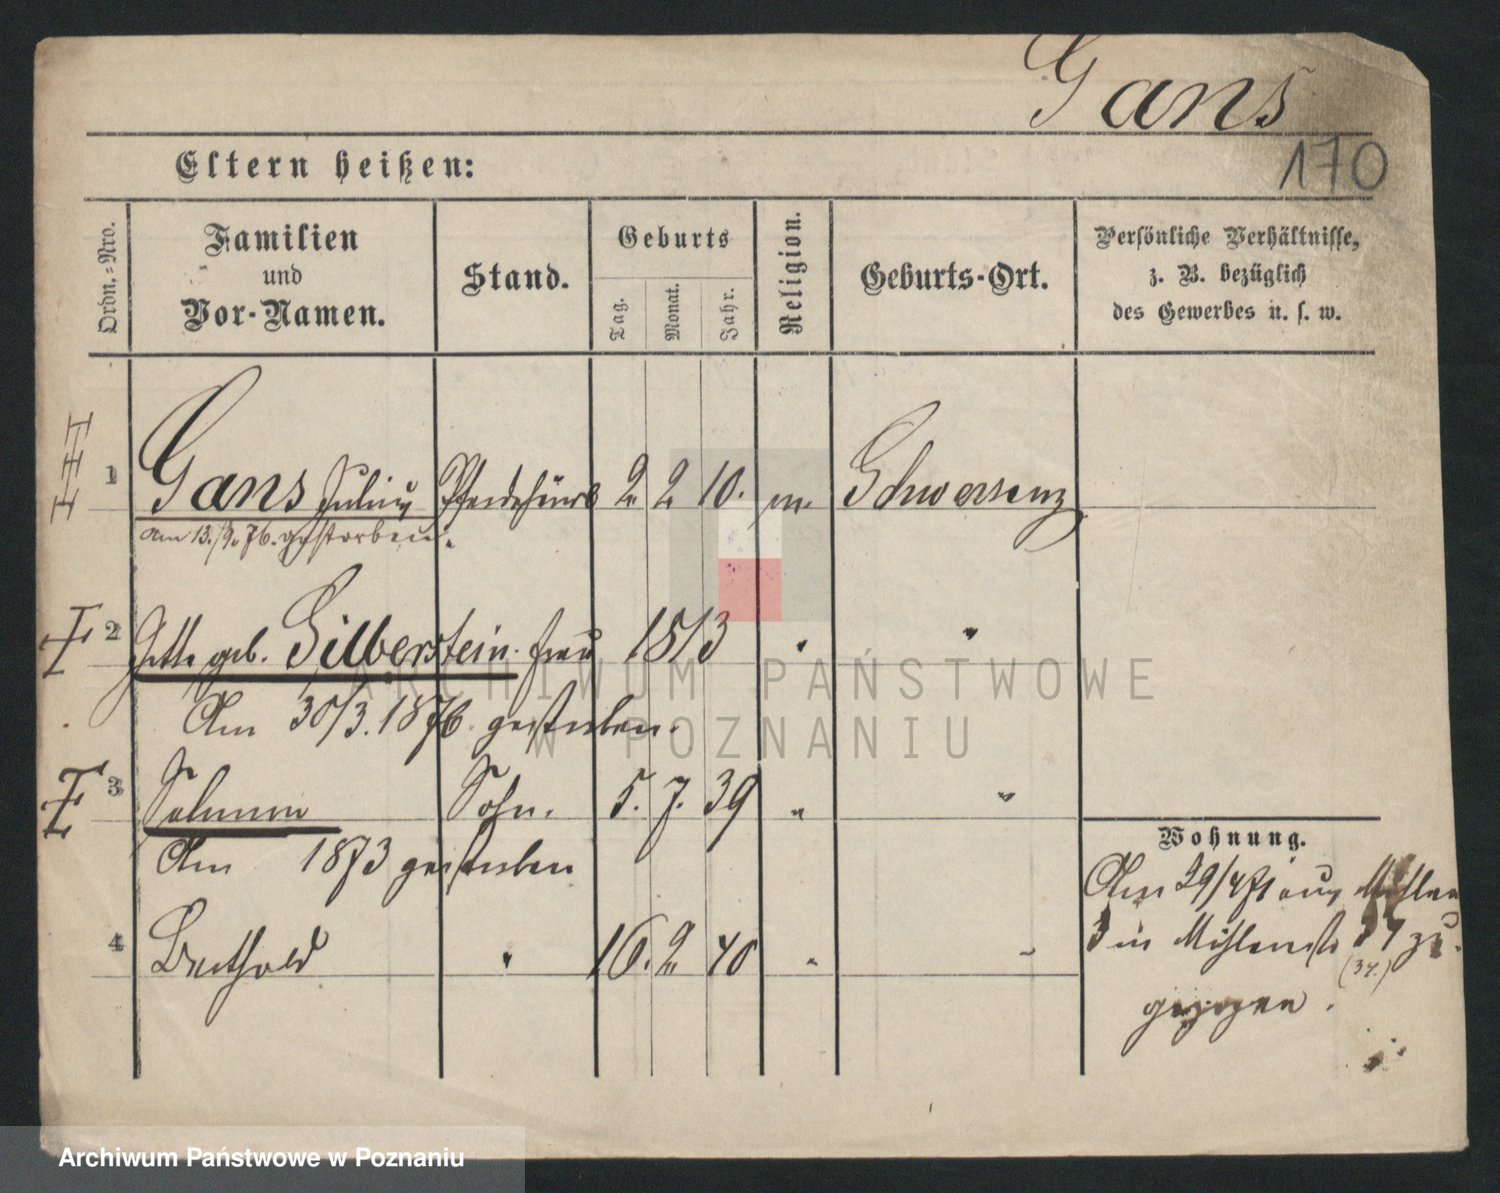 Gans
170
Eltern heißen:
Ordn.=Nro.
Familien
und
Vor-Namen.
Stand.
Geburts
Tag.
Monat.
Jahr.
Religion.
Geburts-Ort.
Persönliche Verhältnisse,
z. B. bezüglich
des Gewerbes u. s. w.
1 Gans Julius 2 2 10. m. Schwersenz
am 13./9. 76. gestorben.
2 geb. Silberstein. Frau 1813 " "
Am 30/3. 1876. gestorben.
3 Salomon Sohn. 5. 7. 39 " "
Am 1873 gestorben
4 Berthold " 16. 2. 40 " "
Wohnung.
Am 29/4 71 aus Mühlen
3 in Mühlenstr 37 zu.
(37.)
gezogen.
ARCHIWUM PAŃSTWOWE
W POZNANIU
Archiwum Państwowe w Poznaniu